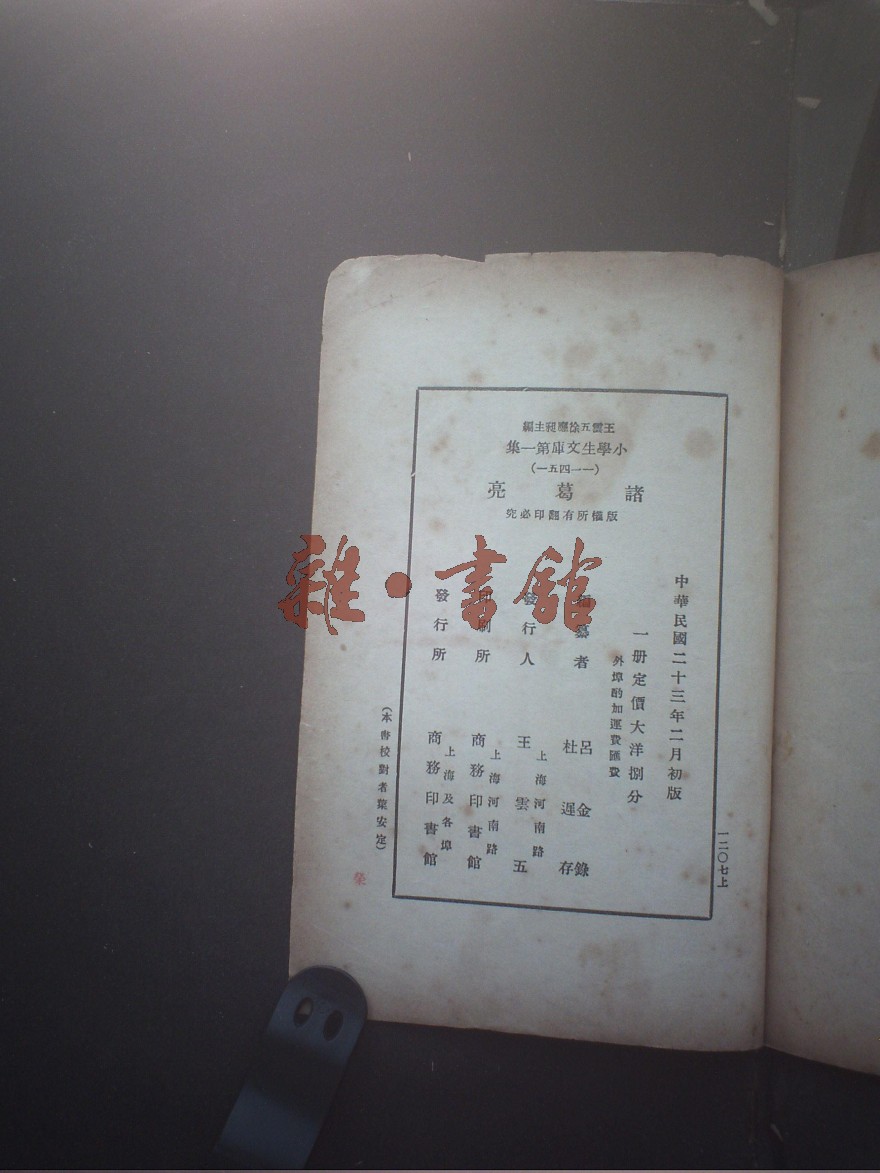 王雲五徐應昶主編
小學生文庫第一集
(一一四五一)
諸葛亮
版權所有翻印必究
中華民國二十三年二月初版
一册定價大洋捌分
外埠酌加運費匯費
編纂者 呂金錄 杜遲存
發行人 王雲五
上海河南路
印刷所 商務印書館
上海河南路
發行所 商務印書館
上海及各埠
(本書校對者葉安定)
一二〇七上
榮
雜·書館